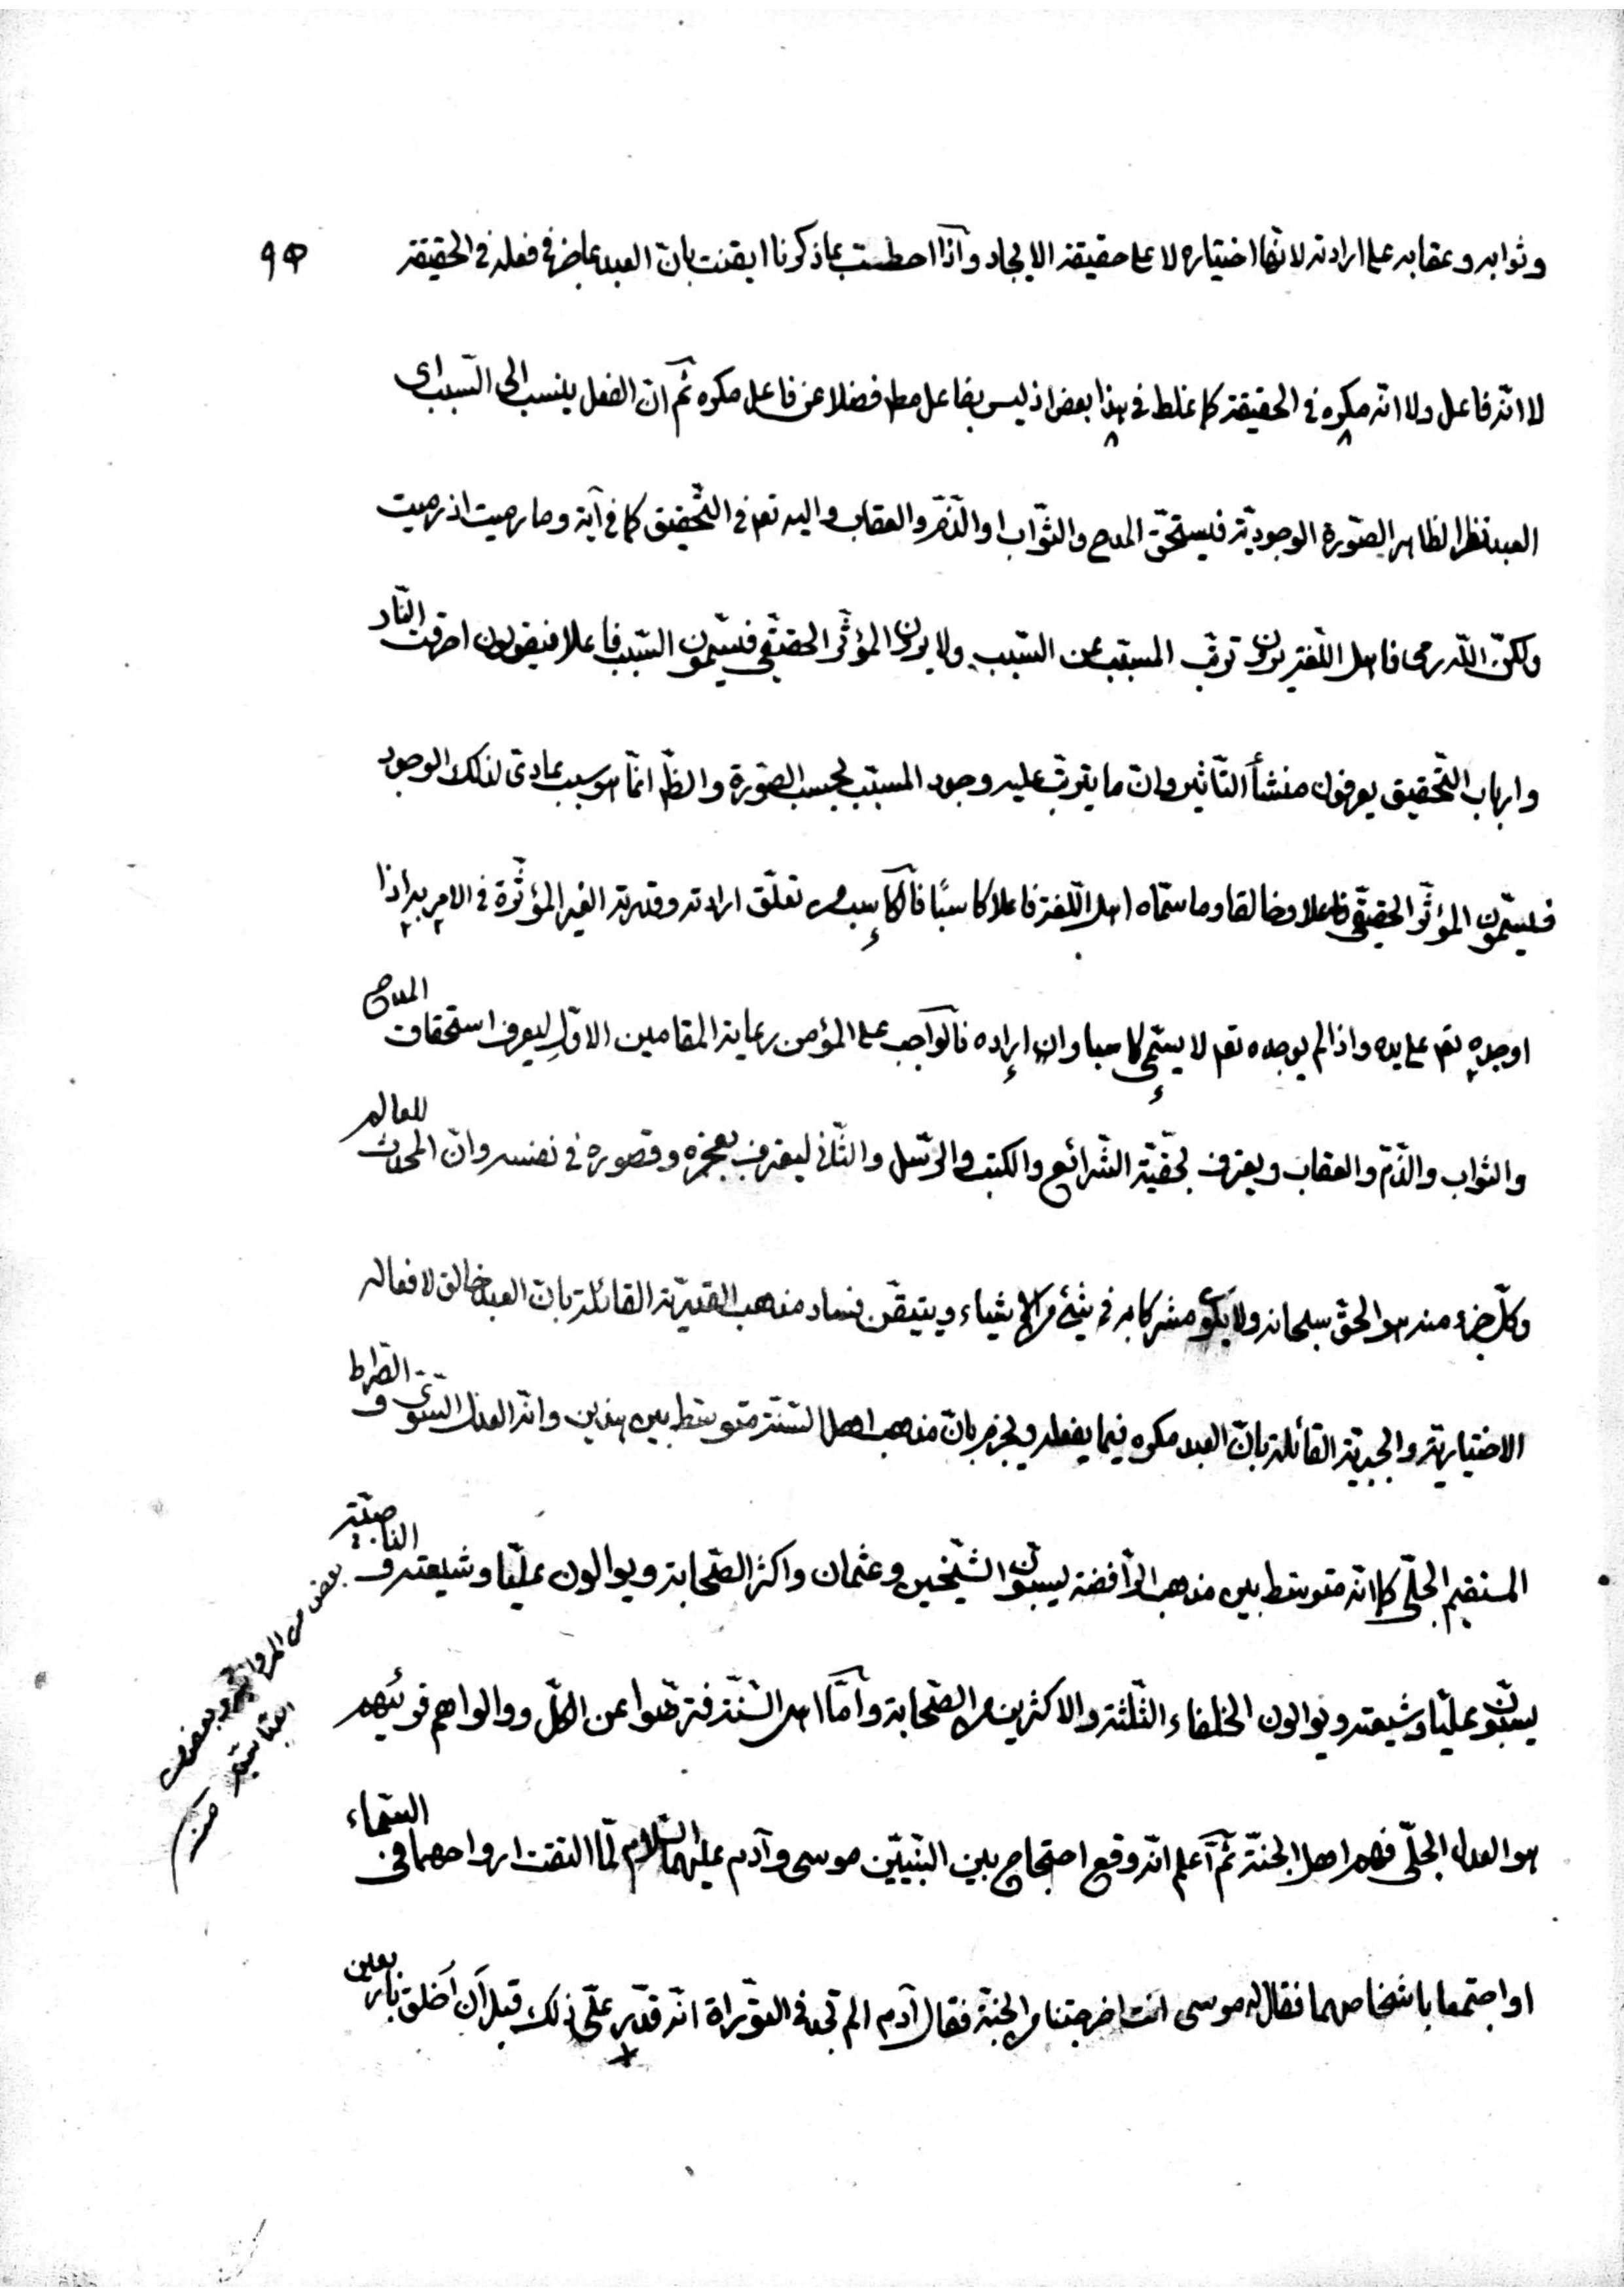 وثوابه وعقابه على ارادته لانّها اختياره لا على حقيقة الايجاد وآذا احطت بما ذكرنا ايقنت بانّ العبد عاجز في فعله في الحقيقة
لا انّه فاعل ولا انّه مكره في الحقيقة كما غلط في هذا بعض اذ ليس بفاعل مط فضلا عن فاعل مكره ثم انّ الفعل ينسب الى السّبب اى
العبد نظرا لظاهر الصّورة الوجوديّة فيستحقّ المدح والثّواب او الذّمّ والعقاب واليه تع في التّحقيق كما في آية وما رميت اذ رميت
ولكنّ اللّه رمى فاهل اللّغة يرون ترتّب المسبّب عن السّبب ولا يرون المؤثّر الحقيقى فيسمّون السّبب فاعلا فيقولون احرقت النّار
وارباب التّحقيق يعرفون منشأ التّأثير وانّ ما يترتّب عليه وجود المسبّب بحسب الصّورة والظّ انّما هو سبب عادىّ لذلك الوجود
فيسمّون المؤثّر الحقيقى فاعلا وخالقا وما سمّاه اهل اللّغة فاعلا كاسبًا فالكاسب من تعلّق ارادته وقدرته الغير المؤثّرة في الامر به اذا
اوجده تع على يده واذا لم يوجده تع لا يسمّى كاسبا وان اراده فالواجب على المؤمن رعاية المقامين الاوّل ليعرف استحقاق المدح
والثواب والذّمّ والعقاب ويعترف بحقّيّة الشّرائع والكتب والرّسل والثّانى ليعترف بعجزه وقصوره في نفسه وانّ المحدث للعالم
وكلّ جزء منه هو الحقّ سبحانه ولا يكون مشركا به في شئ من الاشياء ويتيقّن فساد مذهب القدريّة القائلة بانّ العبد خالق لافعاله
الاختياريّة والجبريّة القائلة بانّ العبد مكره فيما يفعله ويجزم بانّ مذهب اهل السّنّة متوسّط بين هذين وانّه العدل السّوىّ والصّراط
المستقيم الجلّى كما انّه متوسّط بين مذهب الرّافضة يسبّون الشّيخين وعثمان واكثر الصّحابة ويوالون عليّا وشيعته و النّاصبيّة
يسبّون عليّا وشيعته ويوالون الخلفاء الثّلثة والاكثرين من الصّحابة وآمّا اهل السّنّة فترضّوا عن الكلّ ووالوا هم فوئيهم
هو العدل الجلّى فهم اهل الجنّة ثم آعلم انّه وقع احتجاج بين النّبيّين موسى وآدم عليهما السّلام لمّا التقت ارواحهما في السّماء
او اجتمعا باشخاصهما فقال له موسى انت اخرجتنا من الجنّة فقال آدم الم تجد في التّوراة انّه قدّر علىّ ذلك قبل آن اخلق باربعين
بعض من المروانيّة وبعض
العبّاسيّة منه